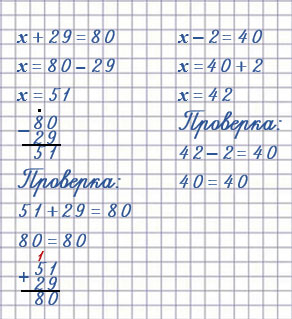 x + 29 = 80
x = 80 - 29
x = 51
- 80
29
51
Проверка:
51 + 29 = 80
80 = 80
1
+ 51
29
80
x - 2 = 40
x = 40 + 2
x = 42
Проверка:
42 - 2 = 40
40 = 40